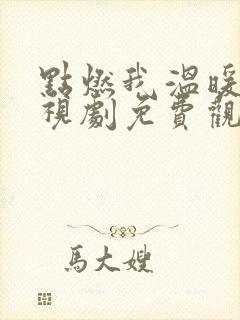 點燃我溫暖
視劇免費觀
馬大嫂